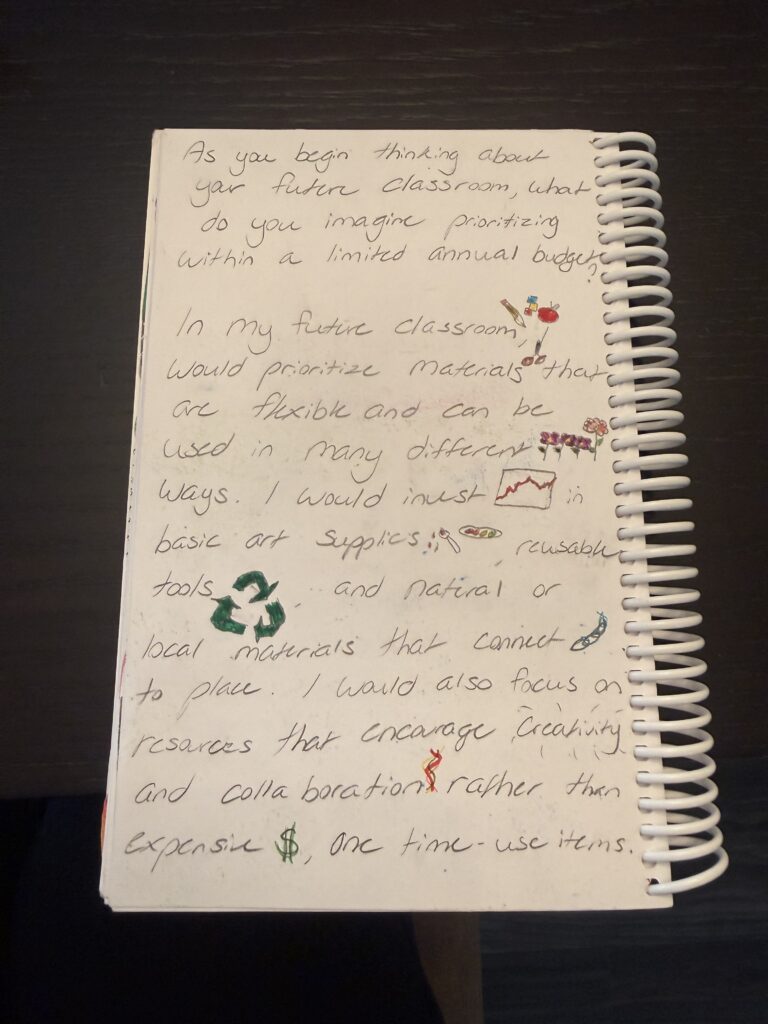 As you begin thinking about
your future classroom, what
do you imagine prioritizing
within a limited annual budget?
In my future classroom, I
would prioritize materials that
are flexible and can be
used in many different
ways. I would invest in
basic art supplies, reusable
tools, and natural or
local materials that connect
to place. I would also focus on
resources that encourage creativity
and collaboration rather than
expensive $, one time-use items.